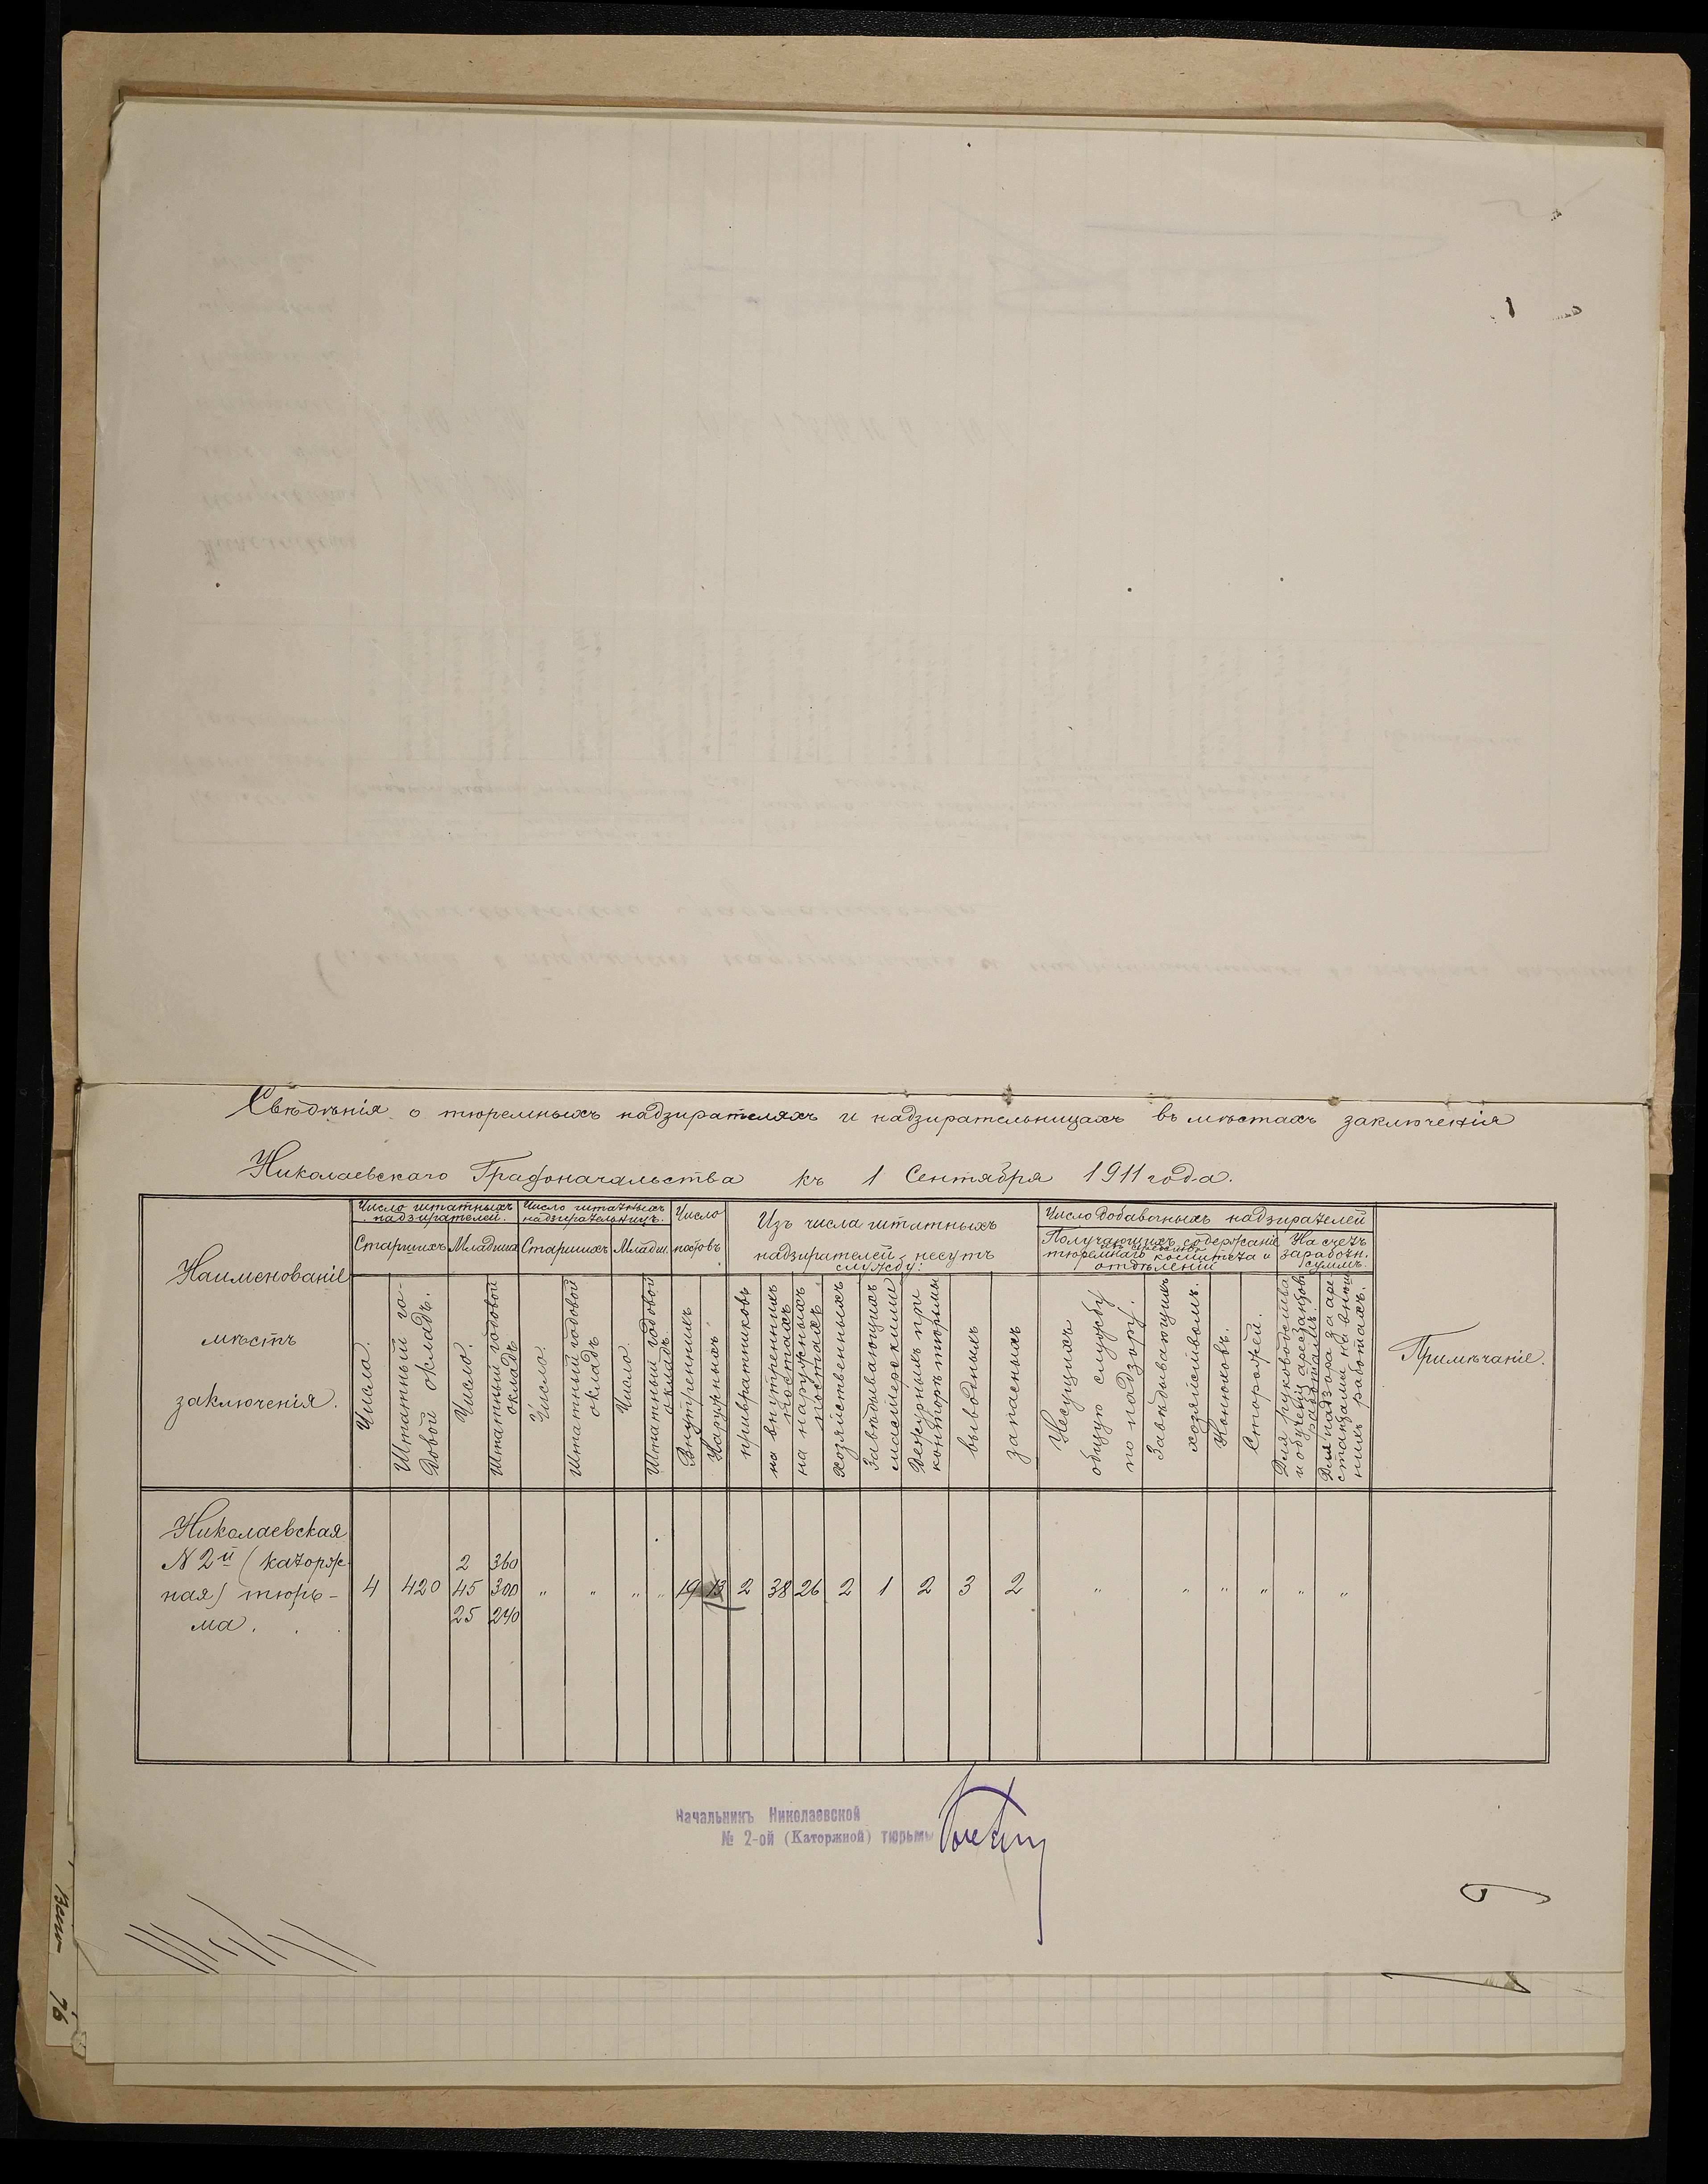 Свѣдѣнія о тюремныхъ надзирателяхъ и надзирательницахъ въ мѣстахъ заключенія
Николаевскаго Градоначальства къ 1 Сентября 1911 года.
Наименованіе
мѣстъ
заключенія.
Число штатныхъ
надзирателей.
Старшихъ
Младших
Число штатныхъ
надзирательницъ.
Старшихъ
Младш.
Число
постовъ
Изъ числа штатныхъ
надзирателей несутъ
службу:
Число добавочныхъ надзирателей
Получающихъ содержаніе
изъ средствъ
тюремнаго комитета и
отдѣленій
На счетъ
заработн.
суммъ.
Число.
Штатный го-
довой окладъ.
Число.
Штатный годовой
окладъ
Число.
Штатный годовой
окладъ
Число.
Штатный годовой
окладъ.
Внутреннихъ
Наружныхъ
привратниковъ
на внутреннихъ
постахъ
на наружныхъ
постахъ.
хозяйственныхъ
Завѣдывающихъ
мастерскими
Дежурныхъ при
конторѣ тюрьмы
выводныхъ
запасныхъ
Несущихъ
общую службу
по надзору.
Завѣдывающихъ
хозяйствомъ.
Конюховъ.
Сторожей.
Для руководства
и обученія арестантовъ
работамъ.
Для надзора за аре
стантами на внѣш
нихъ работахъ.
Примѣчаніе.
Николаевская
N 2й (каторж-
ная) тюрь-
ма.
4 420 2 360
45 300
25 240
" " " " 19 13 2 38 26 2 1 2 3 2 " " " " " "
Начальникъ Николаевской
№ 2-ой (Каторжной) тюрьмы